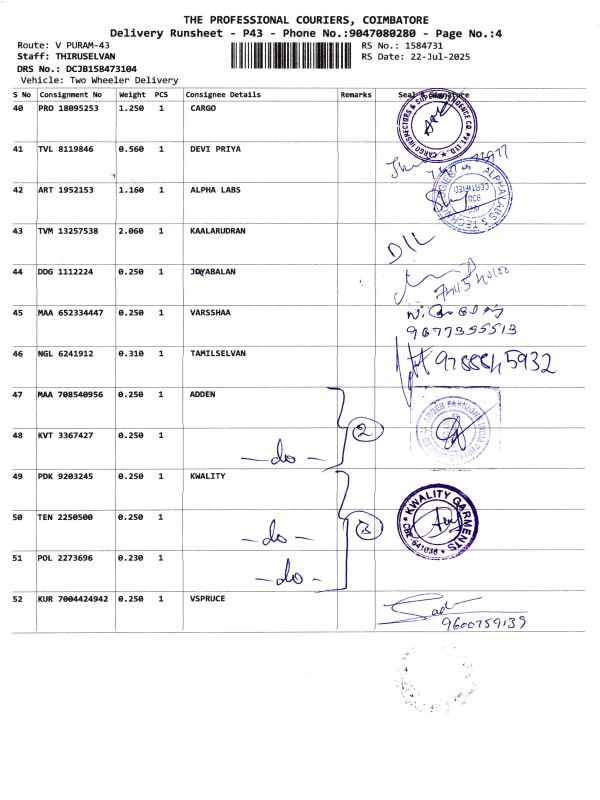 THE PROFESSIONAL COURIERS, COIMBATORE
Delivery Runsheet - P43 - Phone No.:9047080280 - Page No.:4
Route: V PURAM-43 RS No.: 1584731
Staff: THIRUSELVAN RS Date: 22-Jul-2025
DRS No.: DCJB158473104
Vehicle: Two Wheeler Delivery
S No Consignment No Weight PCS Consignee Details Remarks Seal & Signature
40 PRO 18095253 1.250 1 CARGO
41 TVL 8119846 0.560 1 DEVI PRIYA
42 ART 1952153 1.160 1 ALPHA LABS
43 TVM 13257538 2.060 1 KAALARUDRAN
44 DDG 1112224 0.250 1 JOYABALAN
45 MAA 652334447 0.250 1 VARSSHAA
9677355513
46 NGL 6241912 0.310 1 TAMILSELVAN
47 MAA 708540956 0.250 1 ADDEN
2
48 KVT 3367427 0.250 1 -do-
49 PDK 9203245 0.250 1 KWALITY
KWALITY GARMENTS
CBE-641038
50 TEN 2250500 0.250 1 -do- 3
51 POL 2273696 0.230 1 -do-
52 KUR 7004424942 0.250 1 VSPRUCE
9600759139